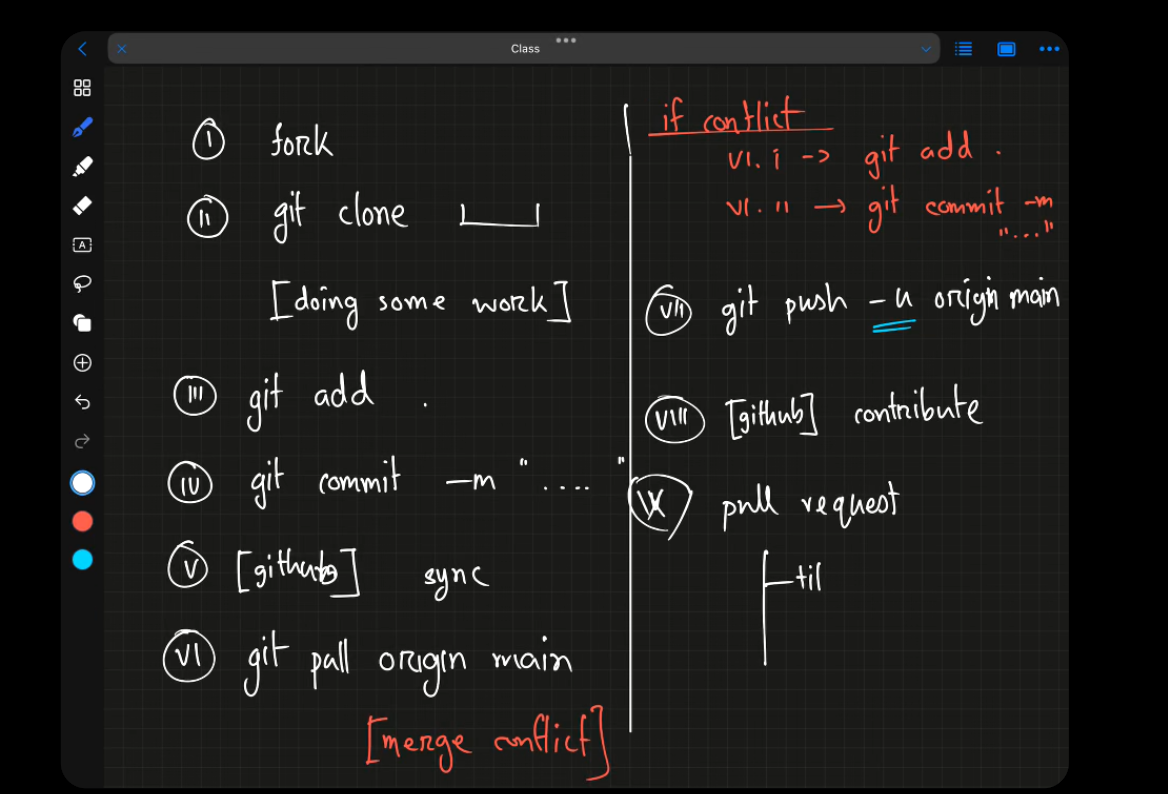 Class
A
I fork
II git clone
[doing some work]
III git add .
IV git commit -m "...."
V [github] sync
VI git pull origin main
[merge conflict]
if conflict
VI. i -> git add .
VI. II -> git commit -m
"..."
VII git push -u origin main
VIII [github] contribute
IX pull request
til